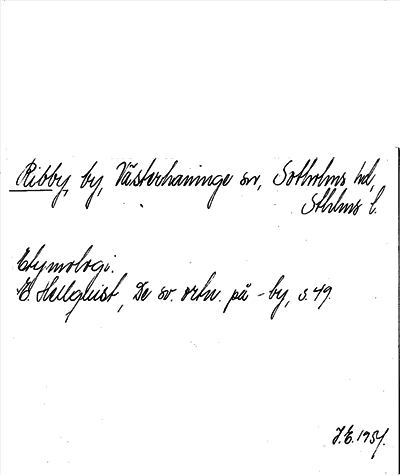 Ribby, by, Västerhaninge sn, Sotholms hd,
Sthlms l.
Etymologi.
E. Hellquist, De sv. ortn. på -by, s. 49.
J.E. 1957.